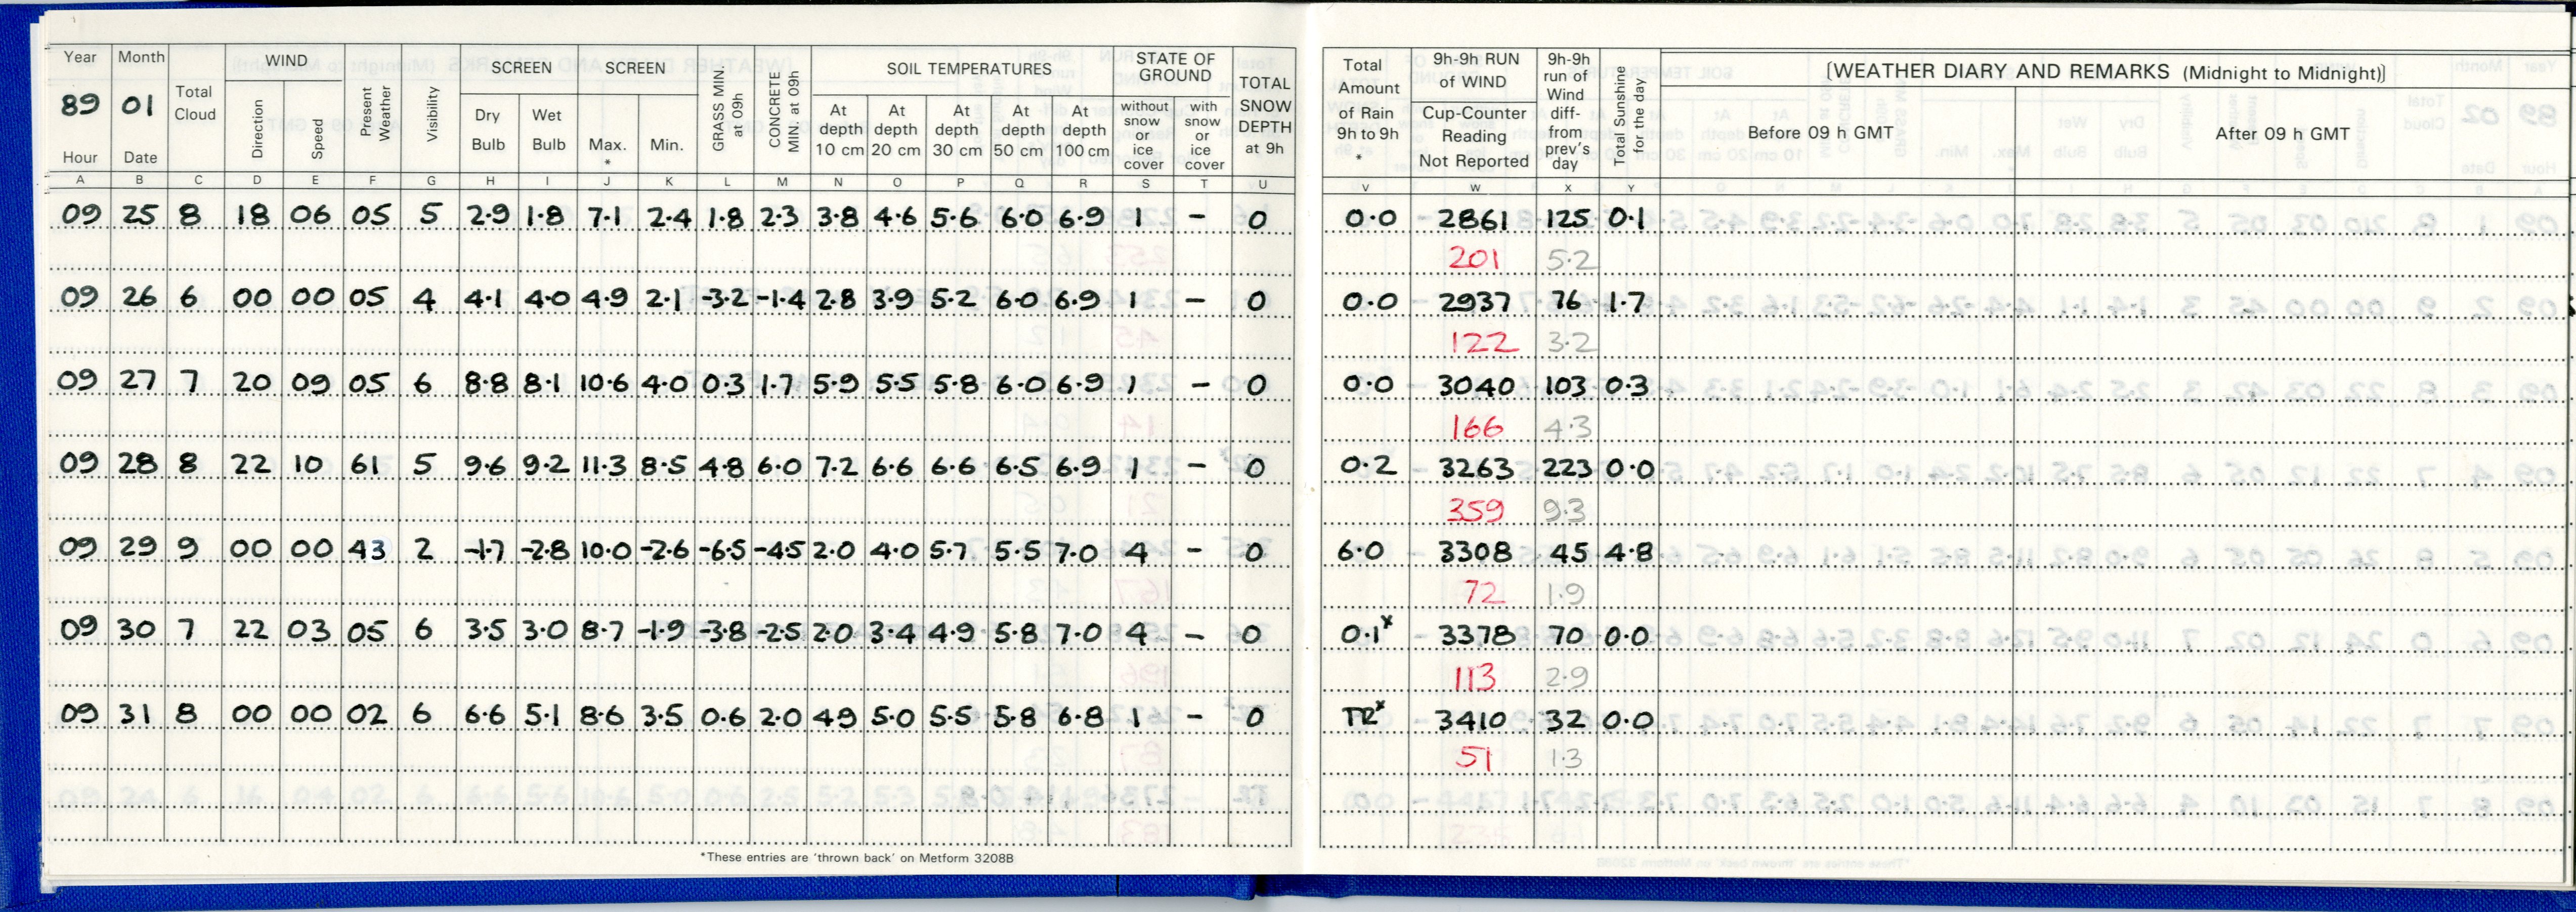 Year Month Total Cloud WIND Present Weather Visibility SCREEN SCREEN GRASS MIN. at 09h CONCRETE MIN. at 09h SOIL TEMPERATURES STATE OF GROUND TOTAL SNOW DEPTH at 9h Total Amount of Rain 9h to 9h * 9h-9h RUN of WIND 9h-9h run of Wind diff- from prev's day Total Sunshine for the day [WEATHER DIARY AND REMARKS (Midnight to Midnight)]
89 01 Direction Speed Dry Bulb Wet Bulb Max. * Min. At depth 10 cm At depth 20 cm At depth 30 cm At depth 50 cm At depth 100 cm without snow or ice cover with snow or ice cover Cup-Counter Reading Not Reported Before 09 h GMT After 09 h GMT
Hour Date
A B C D E F G H I J K L M N O P Q R S T U V W X Y
09 25 8 18 06 05 5 2.9 1.8 7.1 2.4 1.8 2.3 3.8 4.6 5.6 6.0 6.9 1 - 0 0.0 2861 125 0.1
201 5.2
09 26 6 00 00 05 4 4.1 4.0 4.9 2.1 -3.2 -1.4 2.8 3.9 5.2 6.0 6.9 1 - 0 0.0 2937 76 1.7
122 3.2
09 27 7 20 09 05 6 8.8 8.1 10.6 4.0 0.3 1.7 5.9 5.5 5.8 6.0 6.9 1 - 0 0.0 3040 103 0.3
166 4.3
09 28 8 22 10 61 5 9.6 9.2 11.3 8.5 4.8 6.0 7.2 6.6 6.6 6.5 6.9 1 - 0 0.2 3263 223 0.0
359 9.3
09 29 9 00 00 43 2 -1.7 -2.8 10.0 -2.6 -6.5 -4.5 2.0 4.0 5.7 5.5 7.0 4 - 0 6.0 3308 45 4.8
72 1.9
09 30 7 22 03 05 6 3.5 3.0 8.7 -1.9 -3.8 -2.5 2.0 3.4 4.9 5.8 7.0 4 - 0 0.1* 3378 70 0.0
113 2.9
09 31 8 00 00 02 6 6.6 5.1 8.6 3.5 0.6 2.0 4.9 5.0 5.5 5.8 6.8 1 - 0 TR* 3410 32 0.0
51 1.3
*These entries are 'thrown back' on Metform 3208B